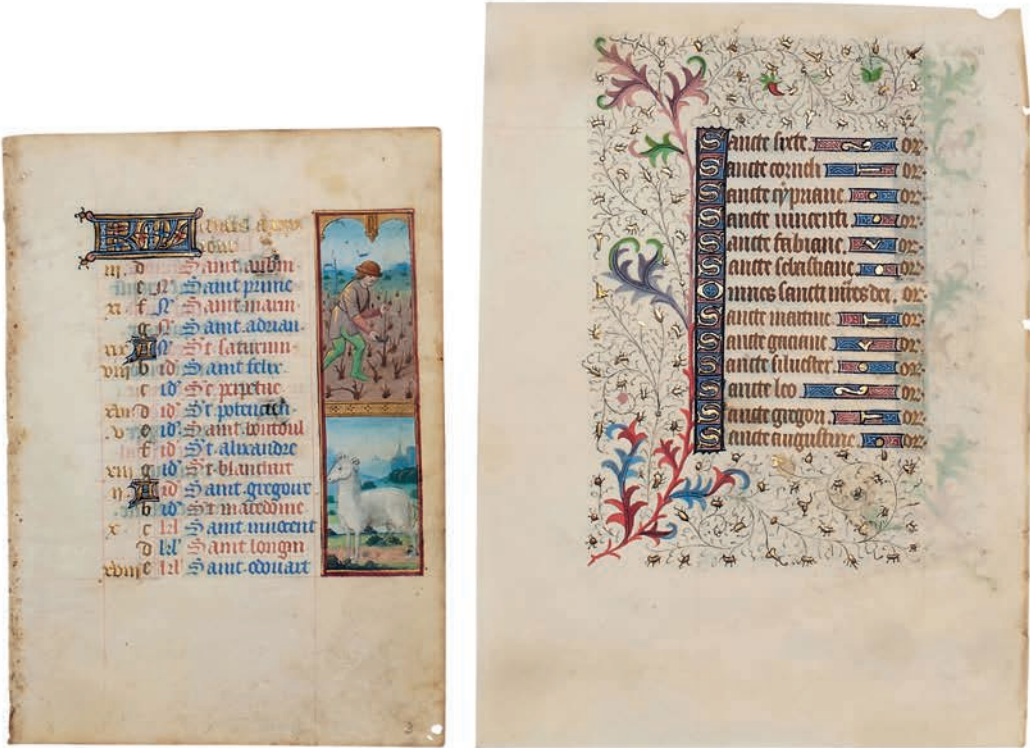 iii d Saint aubin
e N Saint prime
xi f N Saint marin
g N Saint adrian
xix A N St saturnin
viii b id Saint felix
c id Ste perpetue
xvi d id St potencien
v e id Saint boutoul
f id St alixandre
xiii g id St blanchart
ii A id Saint gregoire
b id St macedoine
x c kl Saint innocent
d kl Saint longin
xviii e kl Saint edouart
3
Sancte sixte. or.
Sancte corneli or.
Sancte cypriane or.
Sancte vincenti or.
Sancte fabiane or.
Sancte sebastiane. or.
Omnes sancti mres dei. or.
Sancte martine or.
Sancte gaciane or.
Sancte silvester or.
Sancte leo or.
Sancte gregori or.
Sancte augustine or.